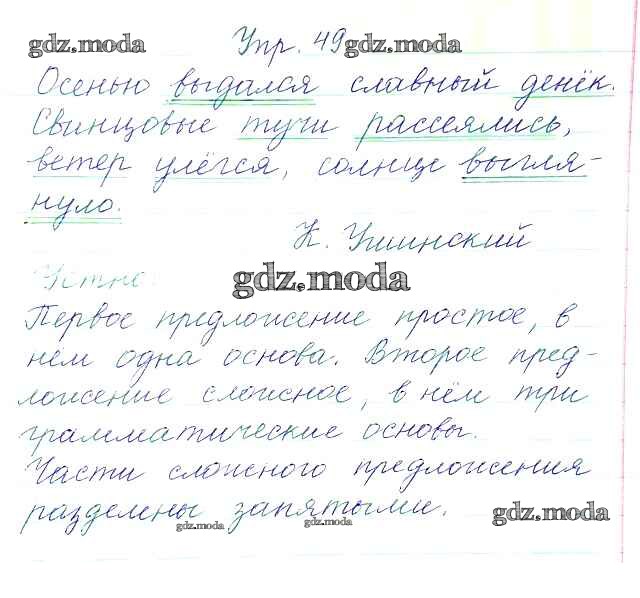 gdz.moda Упр. 49 gdz.moda
Осенью выдался славный денёк.
Свинцовые тучи рассеялись,
ветер улёгся, солнце выгля-
нуло.
К. Ушинский
Устно.
gdz.moda
Первое предложение простое, в
нём одна основа. Второе пред-
ложение сложное, в нём три
грамматические основы.
Части сложного предложения
разделены запятыми.
gdz.moda gdz.moda gdz.moda